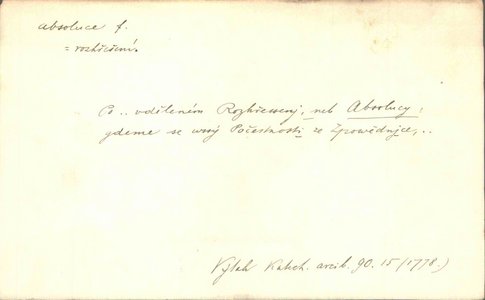 absoluce f.
= rozhřešení.
Po .. vděleném Rozhřessenj, neb Absolucy,
gdeme se wssý Počestnosti ze Zpowědnjce, ..
Výtah Katech. arcib. 90. 15 (1778.)